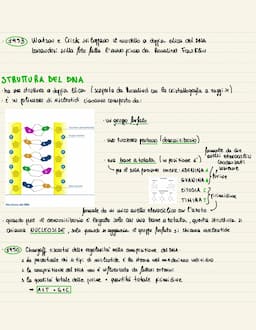 · 1953 Watson e Crick sviluppano il modello a doppia elica del DNA
basandosi sulla foto fatta l'anno prima da Rosalind Franklin
STRUTTURA DEL DNA
· ha una struttura a doppia elica (scoperta da Rosalind con la cristallografia a raggi x)
· è un polimero di nucleotidi ciascuno composto da:
· un gruppo fosfato
· uno zucchero pentoso (desossiribosio)
· una base azotata (in posizione 1'
per il DNA possono essere: ADENINA A
GUANINA G
CITOSINA C
TIMINA T
purine
pirimidine
formate da uno o due anelli eterociclici contenenti
· quando però il desossiribosio è legato solo con una base azotata, questa struttura si
chiama NUCLEOSIDE, solo quando si aggiunge il gruppo fosfato si chiama nucleotide
· 1950 Chargaff scoprì delle regolarità nella composizione del DNA
la percentuale dei 4 tipi di nucleotide è la stessa nel medesimo individuo
la composizione del DNA non è influenzata da fattori esterni
la quantità totale delle purine = quantità totale pirimidine
→ A=T e G=C